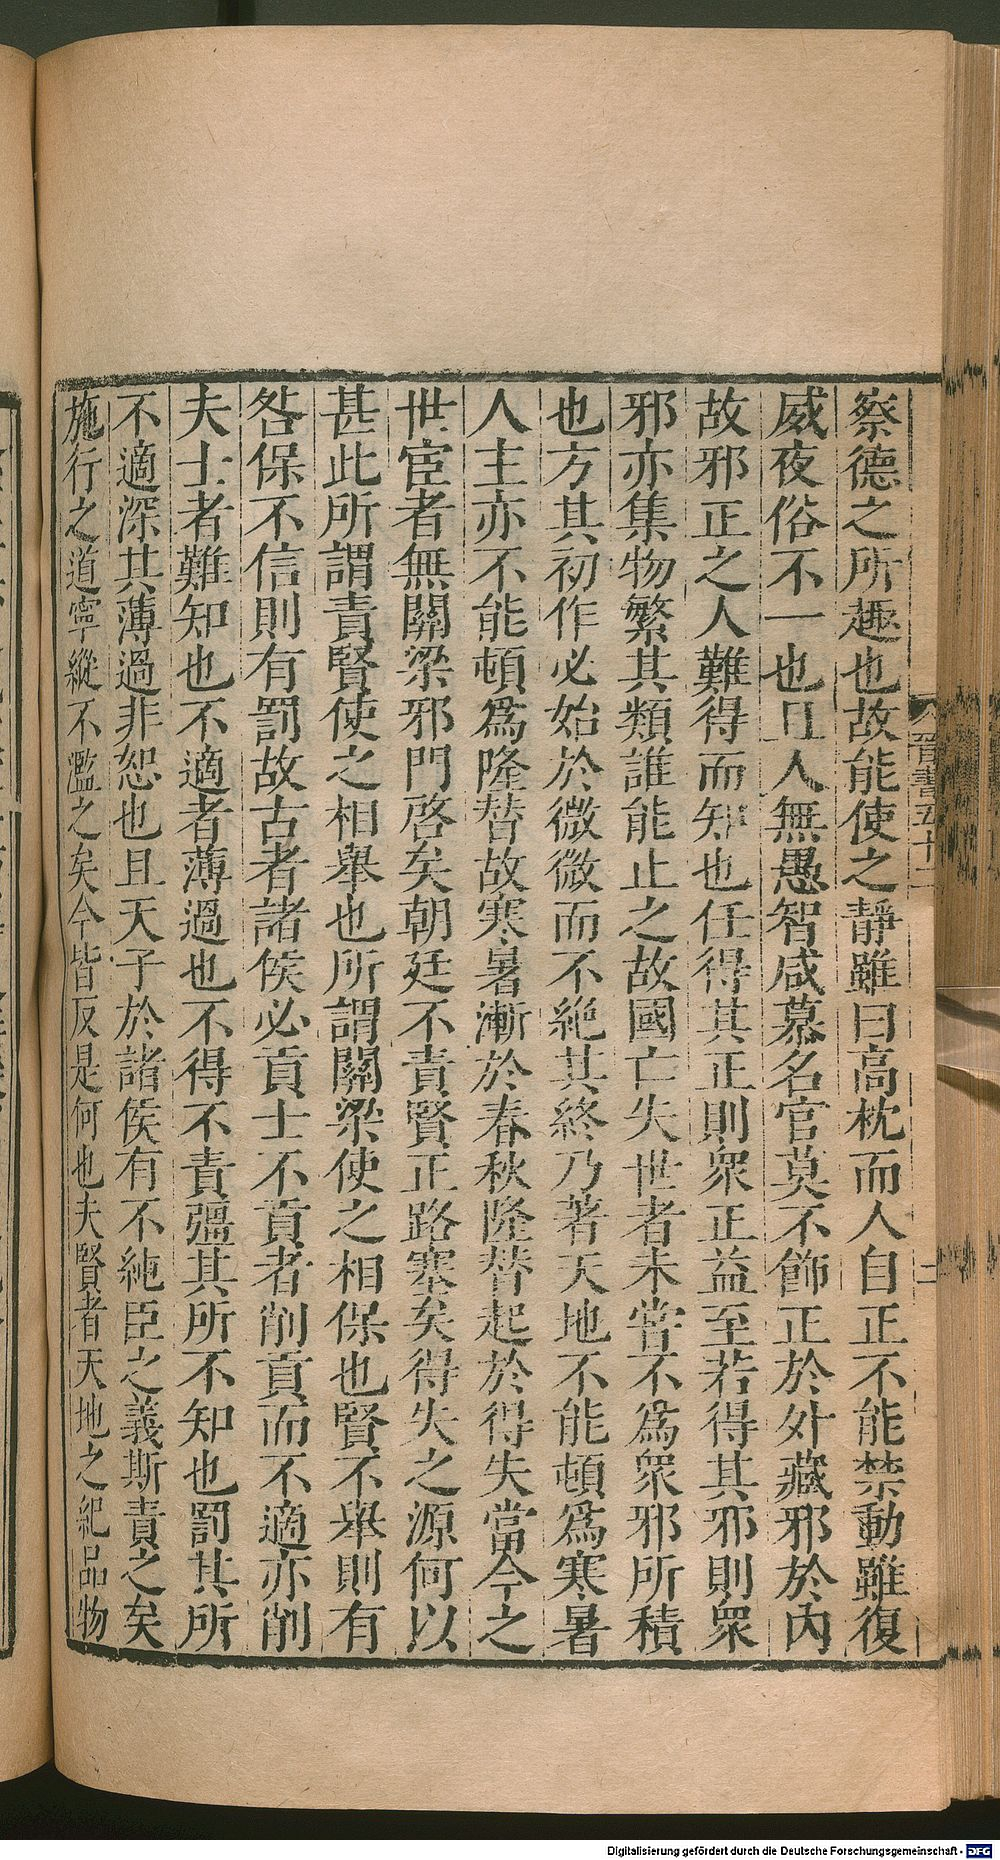 察德之所趣也故能使之靜雖曰高枕而人自正不能禁動雖復
威夜俗不一也且人無愚智咸慕名官莫不飾正於外藏邪於內
故邪正之人難得而知也任得其正則衆正益至若得其邪則衆
邪亦集物繁其類誰能止之故國亡失世者未嘗不爲衆邪所積
也方其初作必始於微微而不絕其終乃著天地不能頓爲寒暑
人主亦不能頓爲隆替故寒暑漸於春秋隆替起於得失當今之
世宦者無關梁邪門啓矣朝廷不責賢正路塞矣得失之源何以
甚此所謂責賢使之相舉也所謂關梁使之相保也賢不舉則有
咎保不信則有罰故古者諸侯必貢士不貢者削貢而不適亦削
夫士者難知也不適者薄過也不得不責彊其所不知也罰其所
不適深其薄過非恕也且天子於諸侯有不純臣之義斯責之矣
施行之道寧縱不濫之矣今皆反是何也夫賢者天地之紀品物
晋書五十二
二
Digitalisierung gefördert durch die Deutsche Forschungsgemeinschaft - DFG